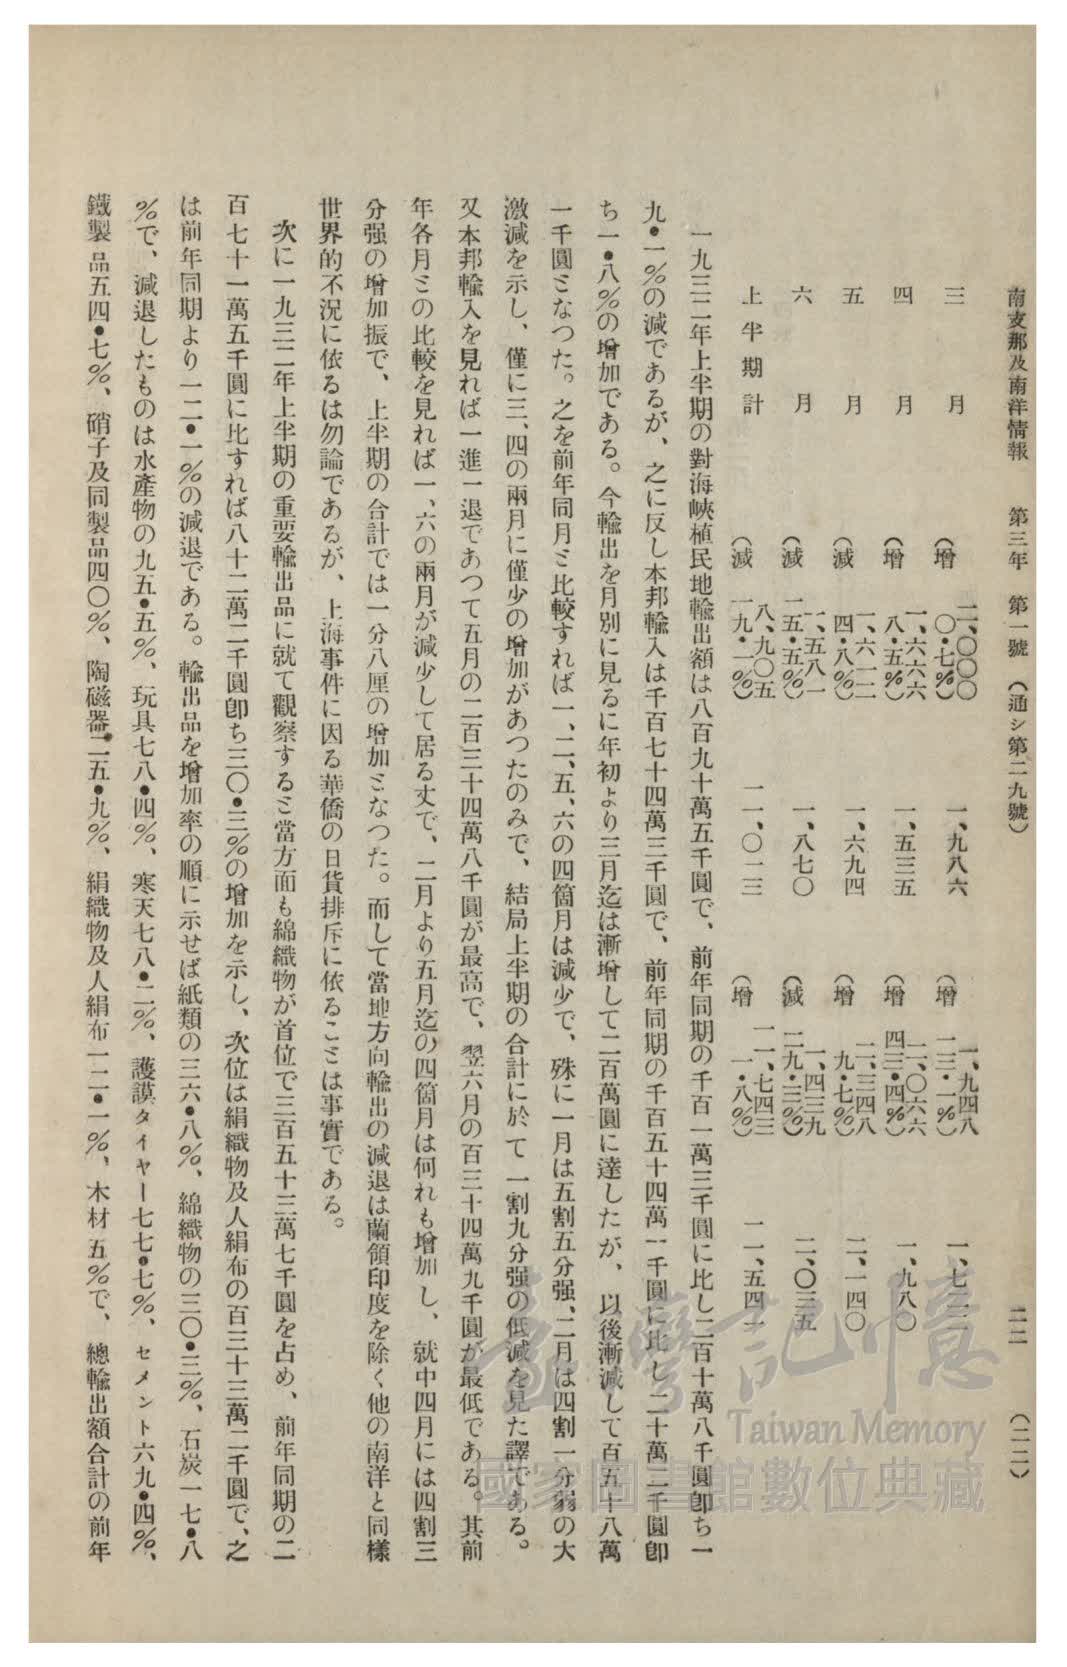 南支那及南洋情報　第三年　第一號　（通シ第二九號）　二二　（二二）
三　月　（增　二、〇〇〇　〇・七％）　一、九八六　（增　一、九四八　一三・一％）　一、七二二
四　月　（增　一、六六六　八・五％）　一、五三五　（增　二、〇六六　四三・四％）　一、九八〇
五　月　（減　一、六一二　四・八％）　一、六九四　（增　二、三四八　九・七％）　二、一四〇
六　月　（減　一、五八一　一五・五％）　一、八七〇　（減　一、四三九　二九・三％）　二、〇三五
上半期計　（減　八、九〇五　一九・一％）　一一、〇一三　（增　一一、七四三　一・八％）　一一、五四一
一九三二年上半期の對海峽植民地輸出額は八百九十萬五千圓で、前年同期の千百一萬三千圓に比し二百十萬八千圓卽ち一
九・一％の減であるが、之に反し本邦輸入は千百七十四萬三千圓で、前年同期の千百五十四萬一千圓に比し二十萬二千圓卽
ち一・八％の增加である。今輸出を月別に見るに年初より三月迄は漸增して二百萬圓に達したが、以後漸減して百五十八萬
一千圓となつた。之を前年同月と比較すれば一、二、五、六の四箇月は減少で、殊に一月は五割五分强、二月は四割一分弱の大
激減を示し、僅に三、四の兩月に僅少の增加があつたのみで、結局上半期の合計に於て一割九分强の低減を見た譯である。
又本邦輸入を見れば一進一退であつて五月の二百三十四萬八千圓が最高で、翌六月の百三十四萬九千圓が最低である。其前
年各月との比較を見れば一、六の兩月が減少して居る丈で、二月より五月迄の四箇月は何れも增加し、就中四月には四割三
分强の增加振で、上半期の合計では一分八厘の增加となつた。而して當地方向輸出の減退は蘭領印度を除く他の南洋と同樣
世界的不況に依るは勿論であるが、上海事件に因る華僑の日貨排斥に依ることは事實である。
次に一九三二年上半期の重要輸出品に就て觀察すると當方面も綿織物が首位で三百五十三萬七千圓を占め、前年同期の二
百七十一萬五千圓に比すれば八十二萬二千圓卽ち三〇・三％の增加を示し、次位は絹織物及人絹布の百三十三萬二千圓で、之
は前年同期より一二・一％の減退である。輸出品を增加率の順に示せば紙類の三六・八％、綿織物の三〇・三％、石炭一七・八
％で、減退したものは水產物の九五・五％、玩具七八・四％、寒天七八・二％、護謨タイヤー七七・七％、セメント六九・四％、
鐵製品五四・七％、硝子及同製品四〇％、陶磁器二五・九％、絹織物及人絹布一二・一％、木材五％で、總輸出額合計の前年
臺灣記憶
Taiwan Memory
國家圖書館數位典藏